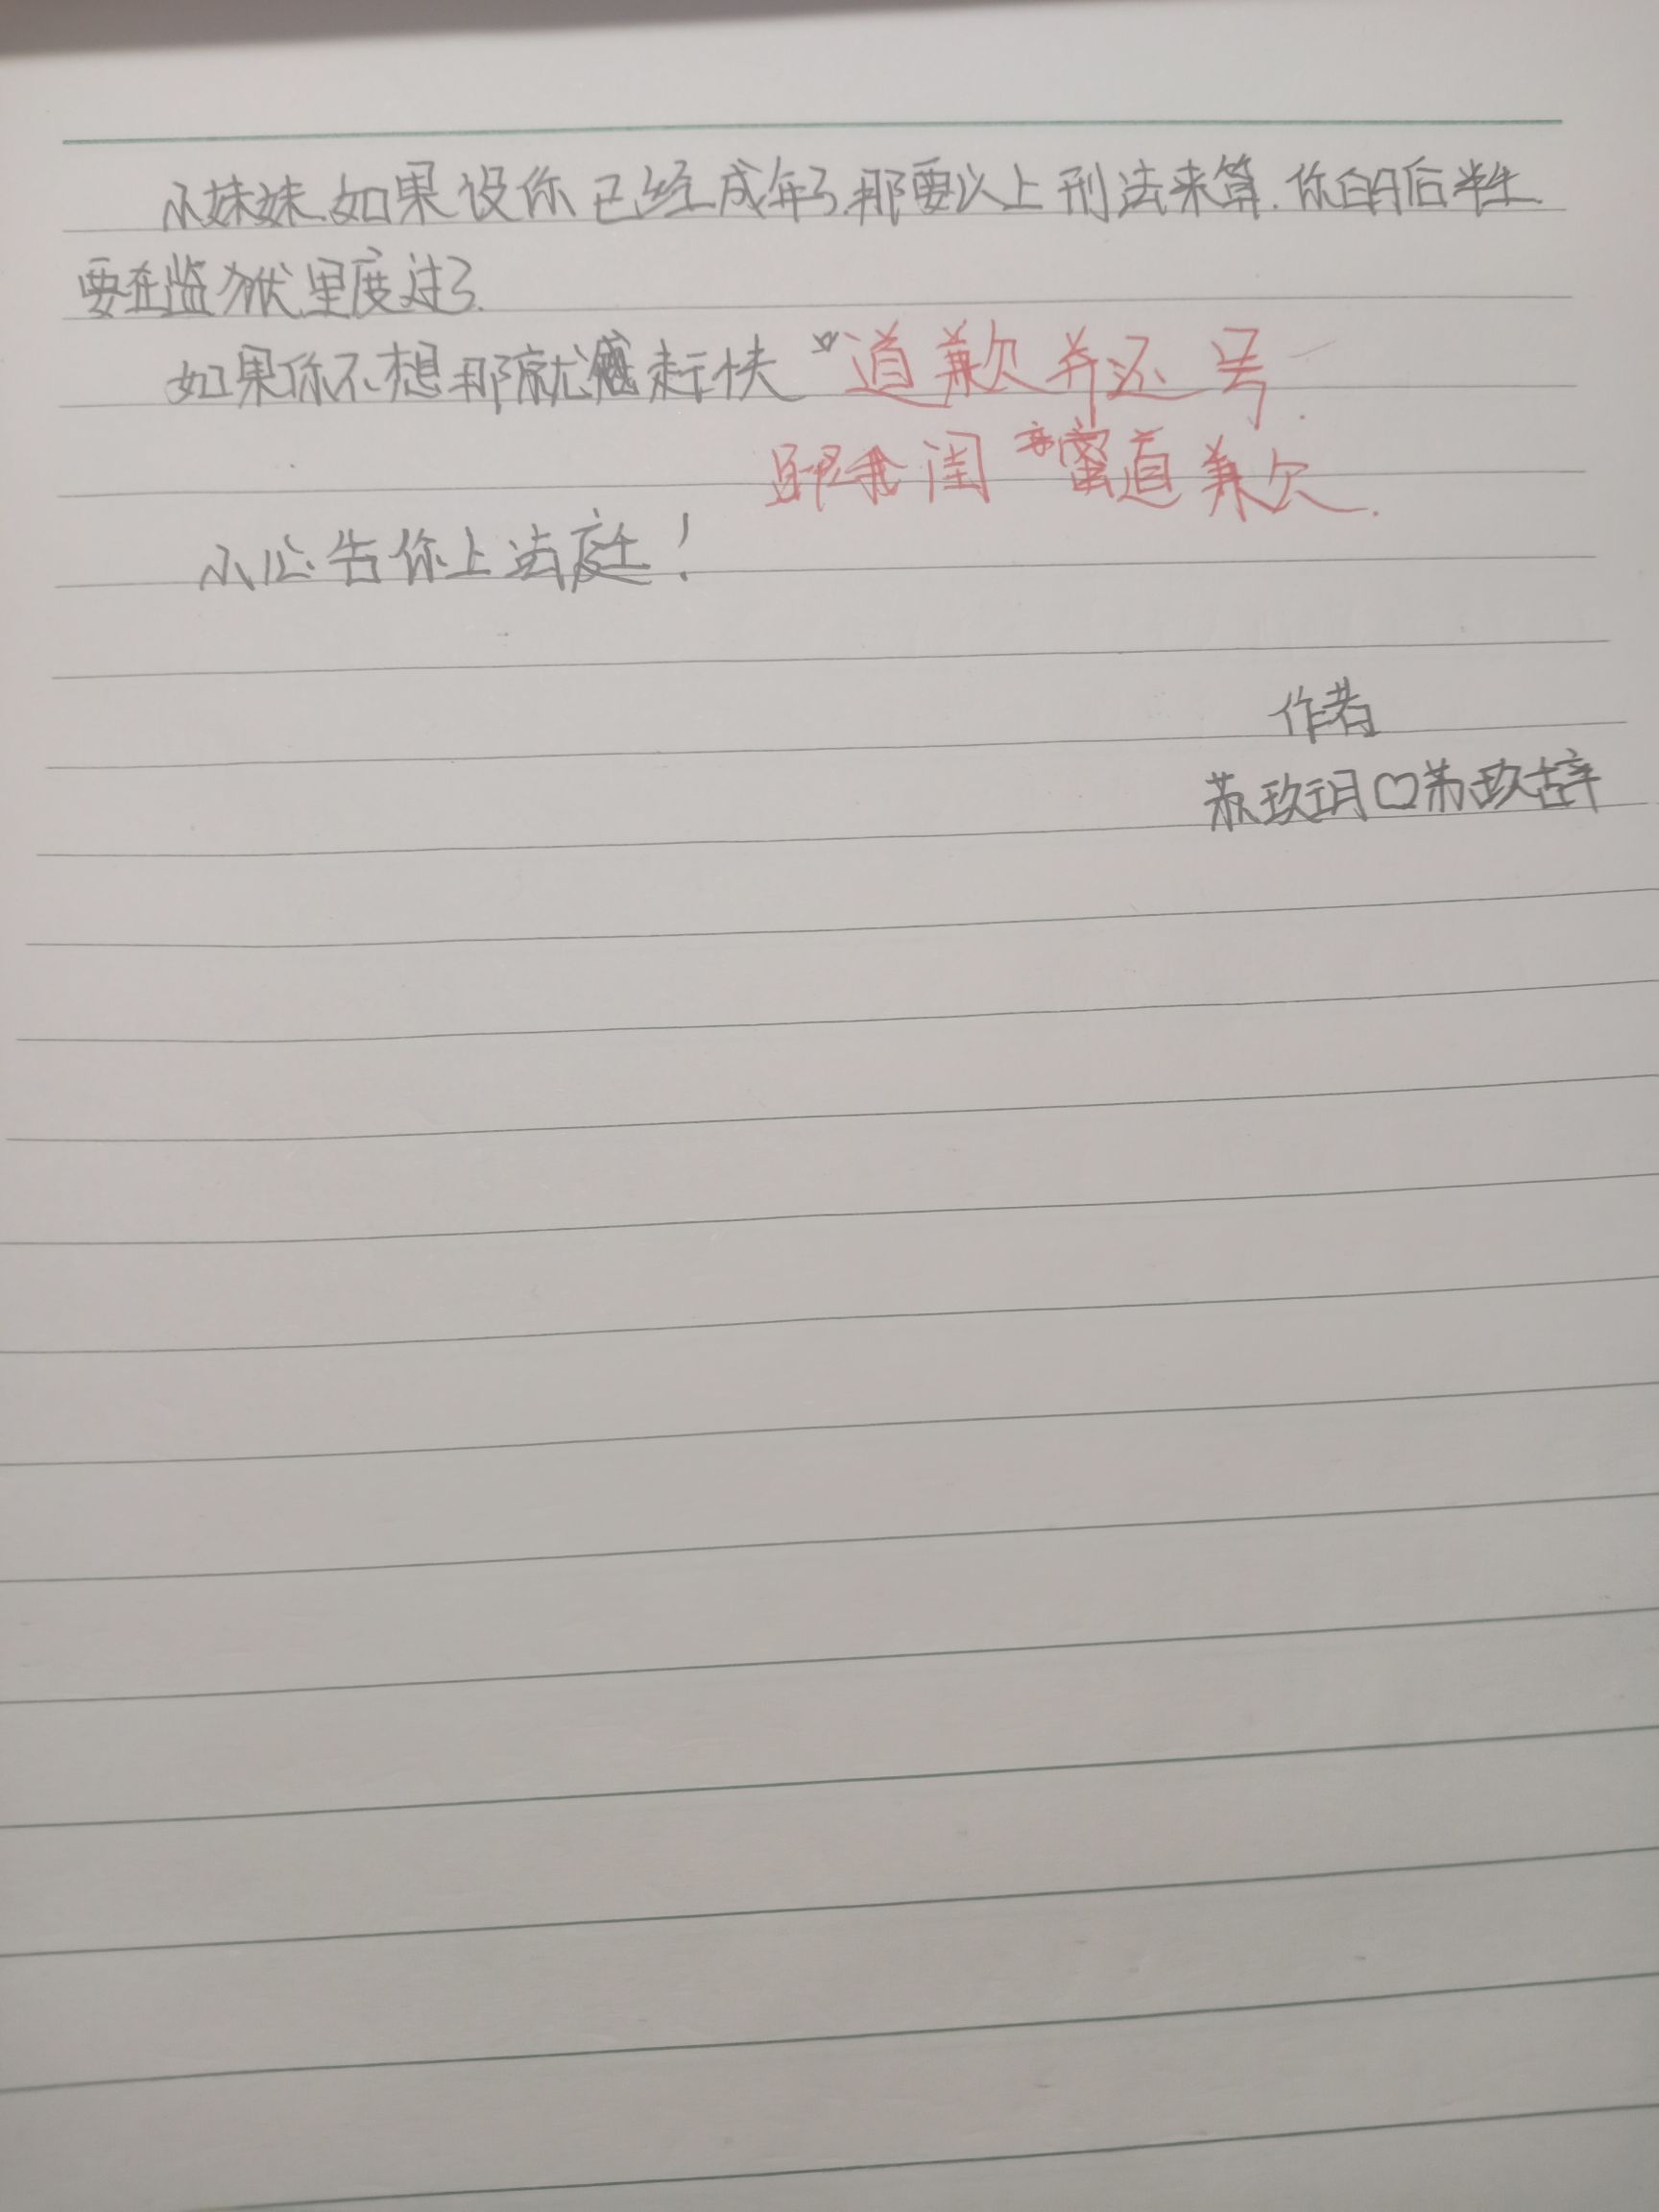 小妹妹.如果设你已经成年了.那要以上刑法来算.你的后半生.
要在监狱里度过了.
如果你不想那就赶快“道歉并还号.
跟我闺蜜道歉.
小心告你上法庭!
作者
苏玖玥♡苏玖辞